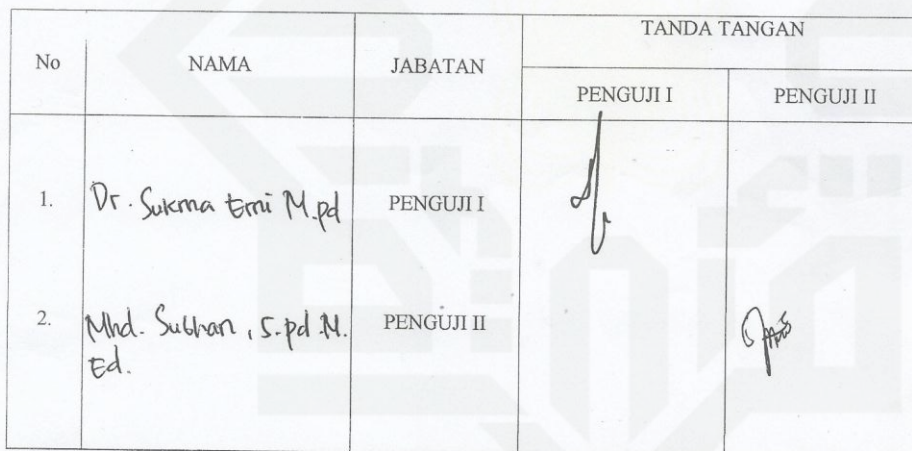 No
NAMA
JABATAN
TANDA TANGAN
PENGUJI I
PENGUJI II
1.
Dr. Sukma Erni M.pd
PENGUJI I
2.
Mhd. Subhan, S.pd.M.
Ed.
PENGUJI II